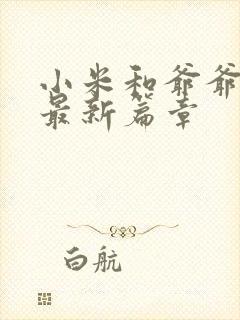 小米和爷爷
最新篇章
白航